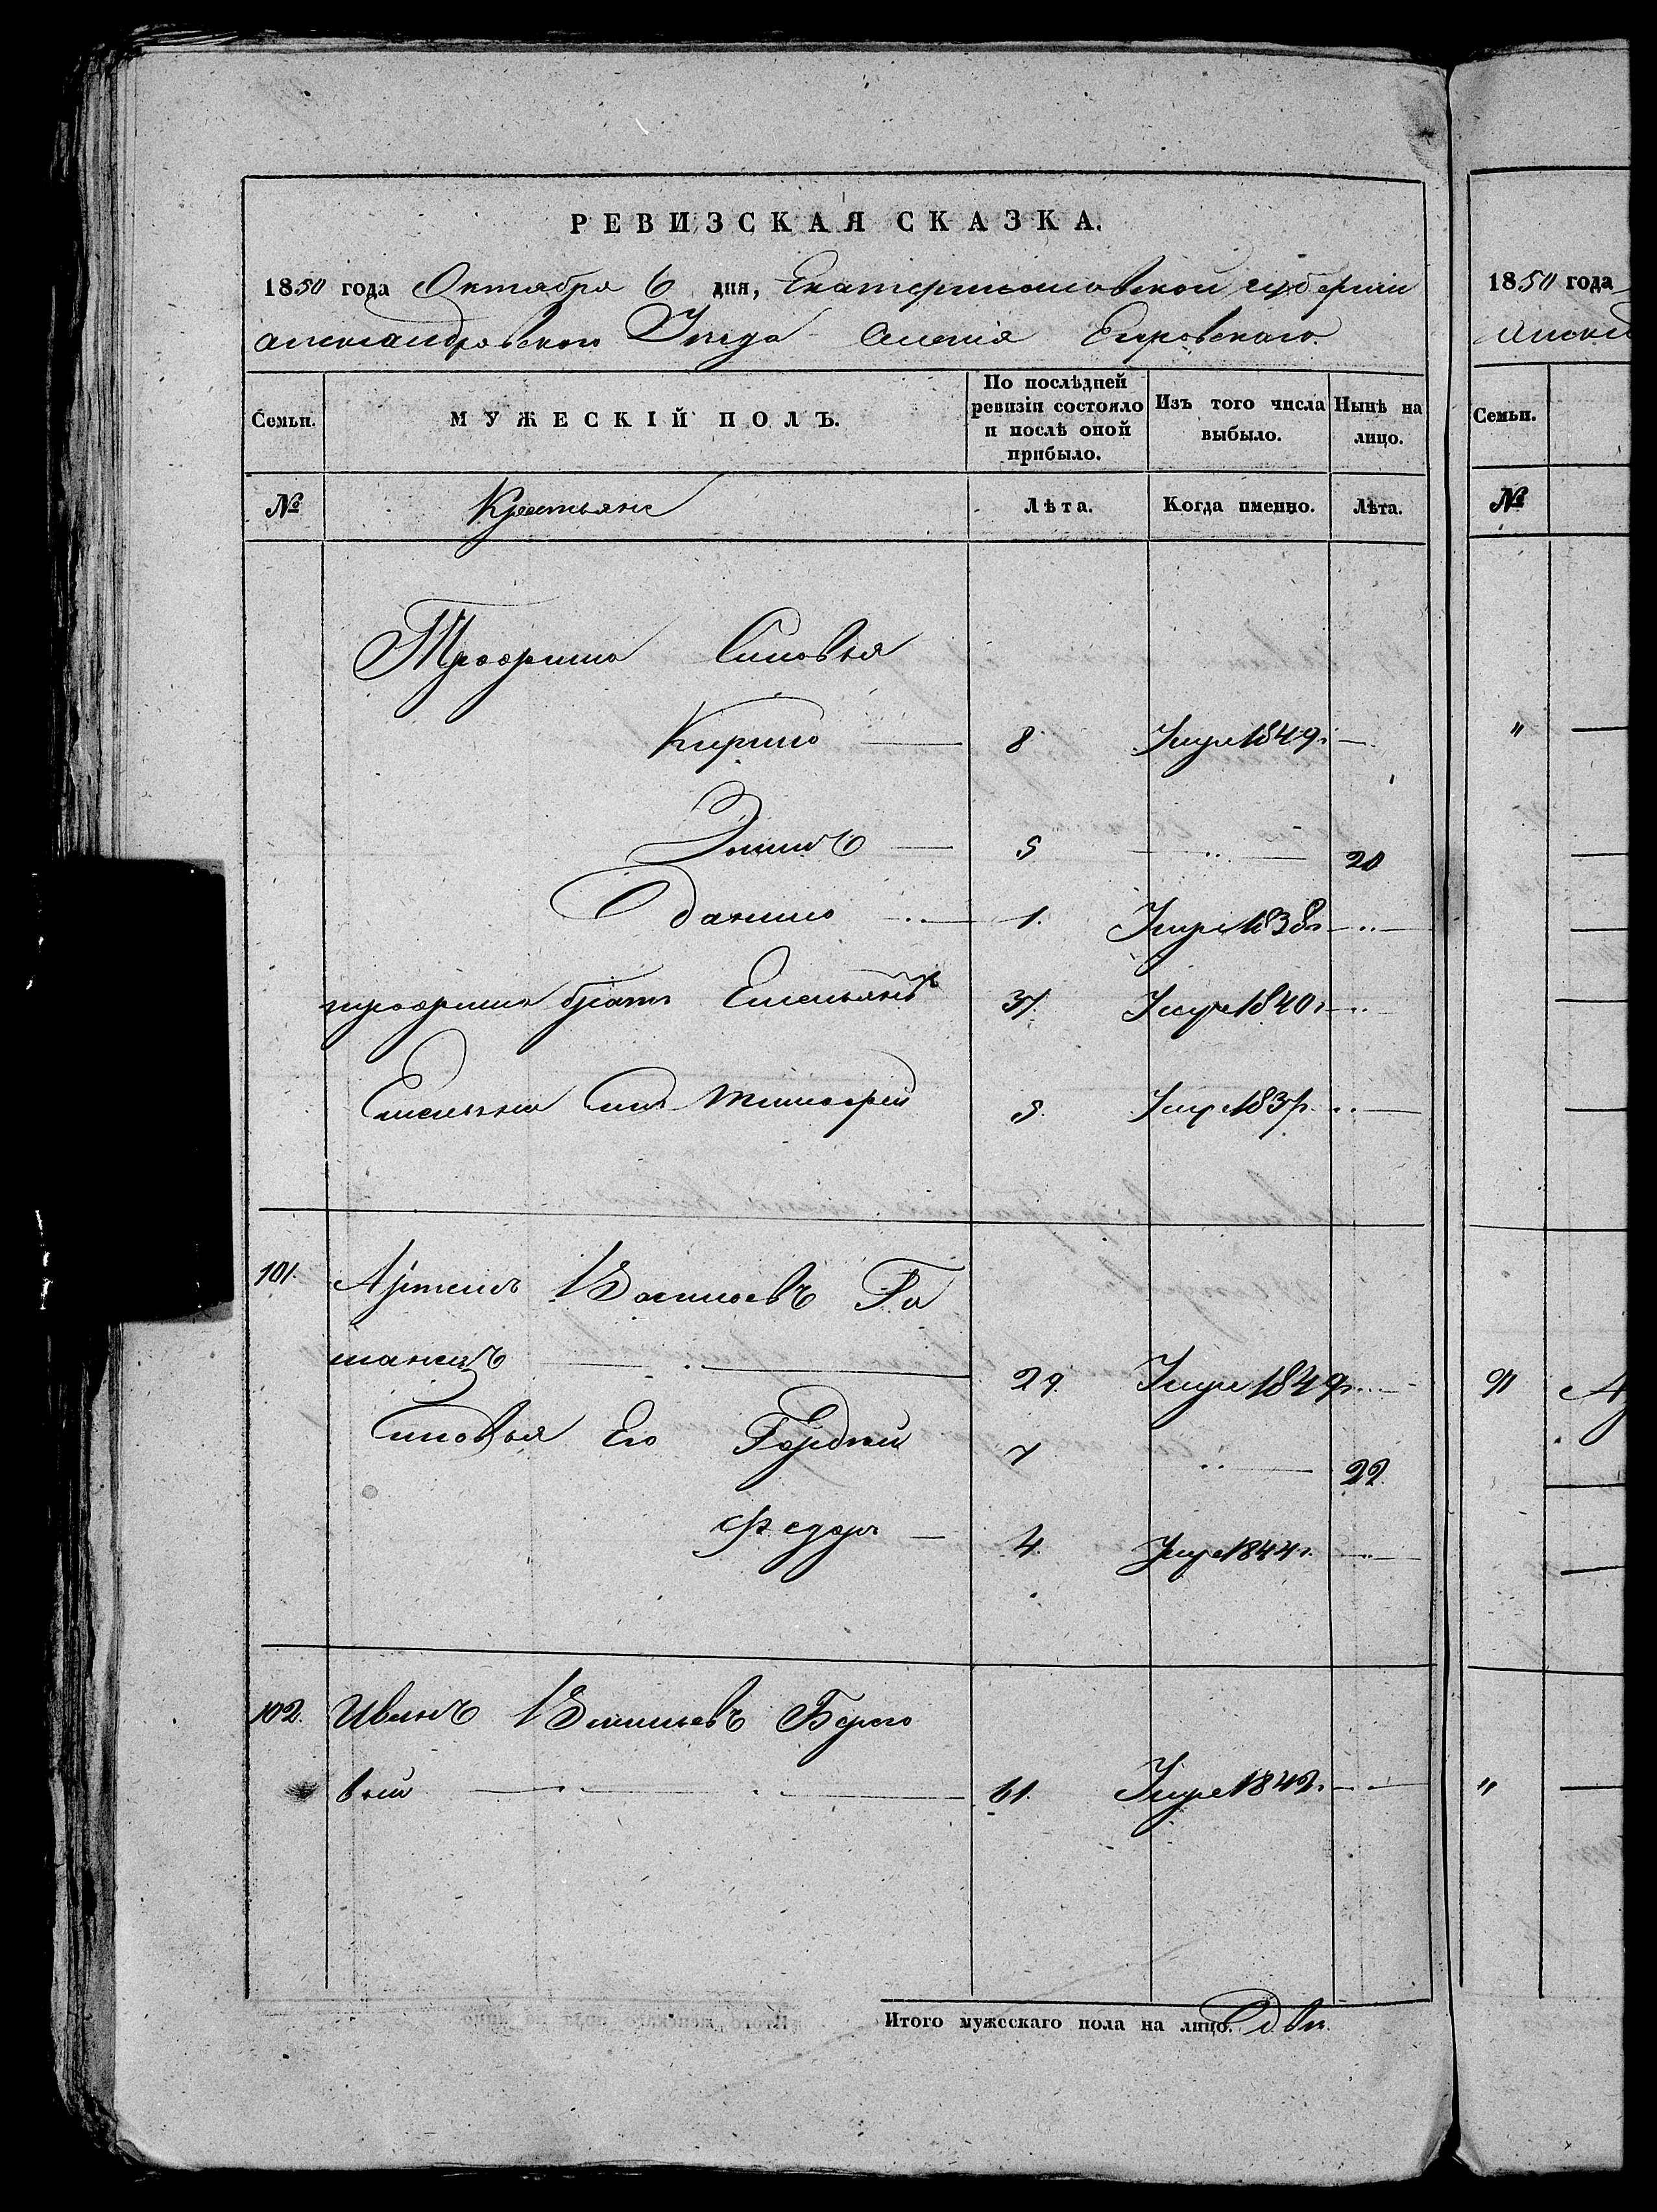 РЕВИЗСКАЯ СКАЗКА.
1850 года Октября 6 дня, Екатеринославской губернии
Александровского Уезда Селенія
Семьи.
МУЖЕСКІЙ ПОЛЪ.
По послѣдней ревизіи состояло и послѣ оной прибыло.
Изъ того числа выбыло.
Нынѣ на лицо.
№
Крестьяне
Лѣта.
Когда именно.
Лѣта.
Трофима Сыновья
Кирило 8 Умре 1849г.
5 20
Данило 1. Умре 1838г.
трофима братъ Емельянъ 37. Умре 1840г.
Емельяна Сынъ тимофей 5. Умре 1837г.
101. Артемъ Васильевъ Га
29. Умре 1849г.
Сыновья Его Гордѣй 7 22.
Федоръ 4. Умре 1844г.
102. Иванъ Васильевъ Берего
вый 61. Умре 1842г.
Итого мужескаго пола на лицо. Два.
1850 года
Семьи.
№
"
"